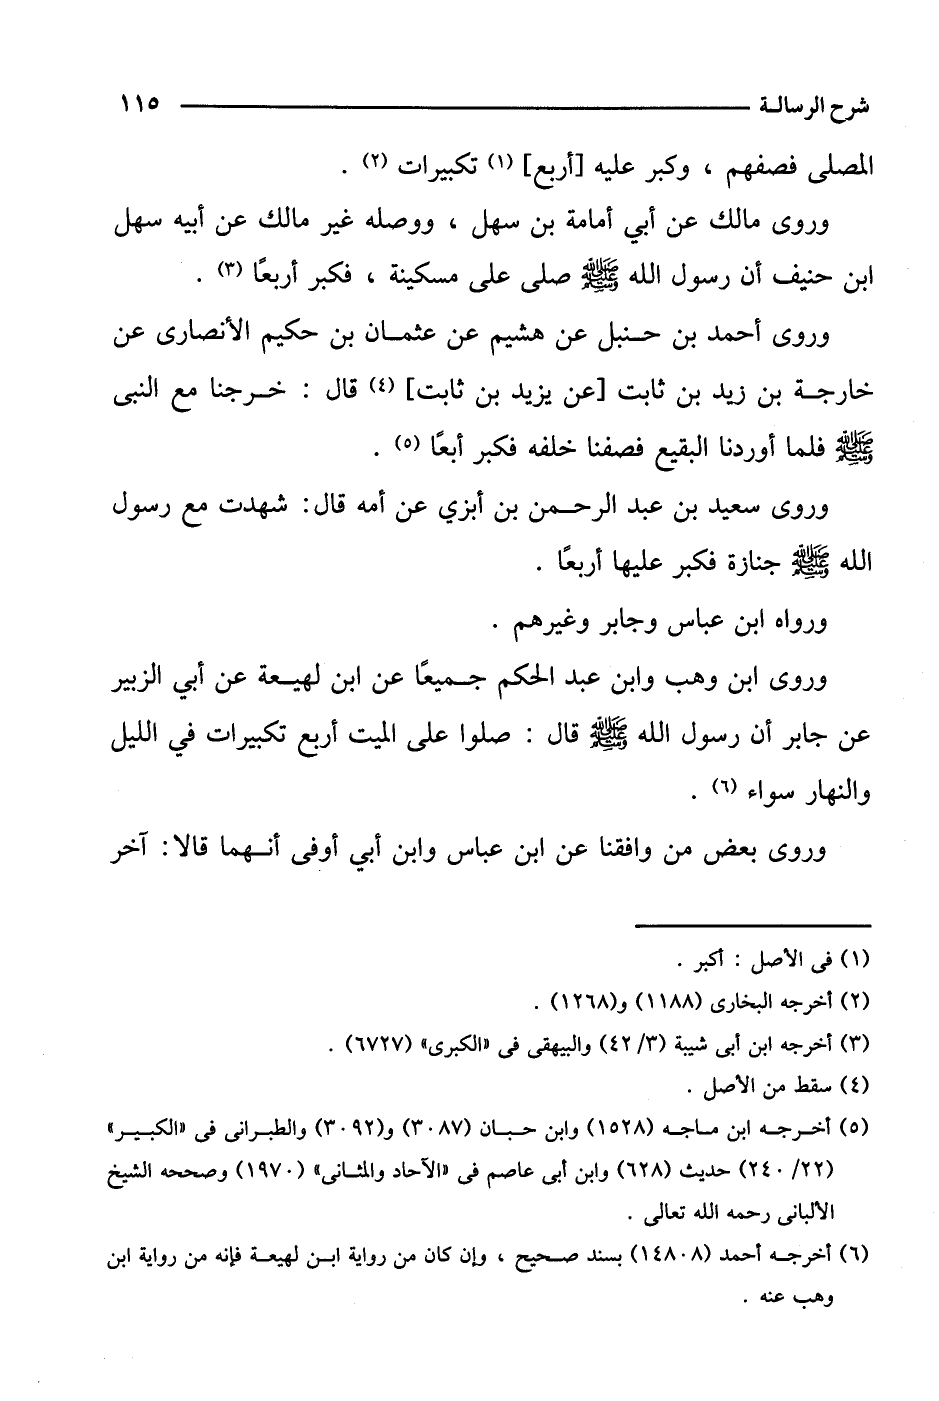 شرح الرسالة ١١٥
المصلى فصفهم ، وكبر عليه [أربع] (١) تكبيرات (٢) .
وروى مالك عن أبي أمامة بن سهل ، ووصله غير مالك عن أبيه سهل
ابن حنيف أن رسول الله ﷺ صلى على مسكينة ، فكبر أربعًا (٣) .
وروى أحمد بن حنبل عن هشيم عن عثمان بن حكيم الأنصارى عن
خارجة بن زيد بن ثابت [عن يزيد بن ثابت] (٤) قال : خرجنا مع النبى
ﷺ فلما أوردنا البقيع فصفنا خلفه فكبر أبعًا (٥) .
وروى سعيد بن عبد الرحمن بن أبزي عن أمه قال : شهدت مع رسول
الله ﷺ جنازة فكبر عليها أربعًا .
ورواه ابن عباس وجابر وغيرهم .
وروى ابن وهب وابن عبد الحكم جميعًا عن ابن لهيعة عن أبي الزبير
عن جابر أن رسول الله ﷺ قال : صلوا على الميت أربع تكبيرات في الليل
والنهار سواء (٦) .
وروى بعض من وافقنا عن ابن عباس وابن أبي أوفى أنهما قالا : آخر
(١) فى الأصل : أكبر .
(٢) أخرجه البخارى (١١٨٨) و(١٢٦٨) .
(٣) أخرجه ابن أبى شيبة (٣/ ٤٢) والبيهقى فى «الكبرى» (٦٧٢٧) .
(٤) سقط من الأصل .
(٥) أخرجه ابن ماجه (١٥٢٨) وابن حبان (٣٠٨٧) و(٣٠٩٢) والطبرانى فى «الكبير»
(٢٢/ ٢٤٠) حديث (٦٢٨) وابن أبى عاصم فى «الآحاد والمثانى» (١٩٧٠) وصححه الشيخ
الألبانى رحمه الله تعالى .
(٦) أخرجه أحمد (١٤٨٠٨) بسند صحيح ، وإن كان من رواية ابن لهيعة فإنه من رواية ابن
وهب عنه .